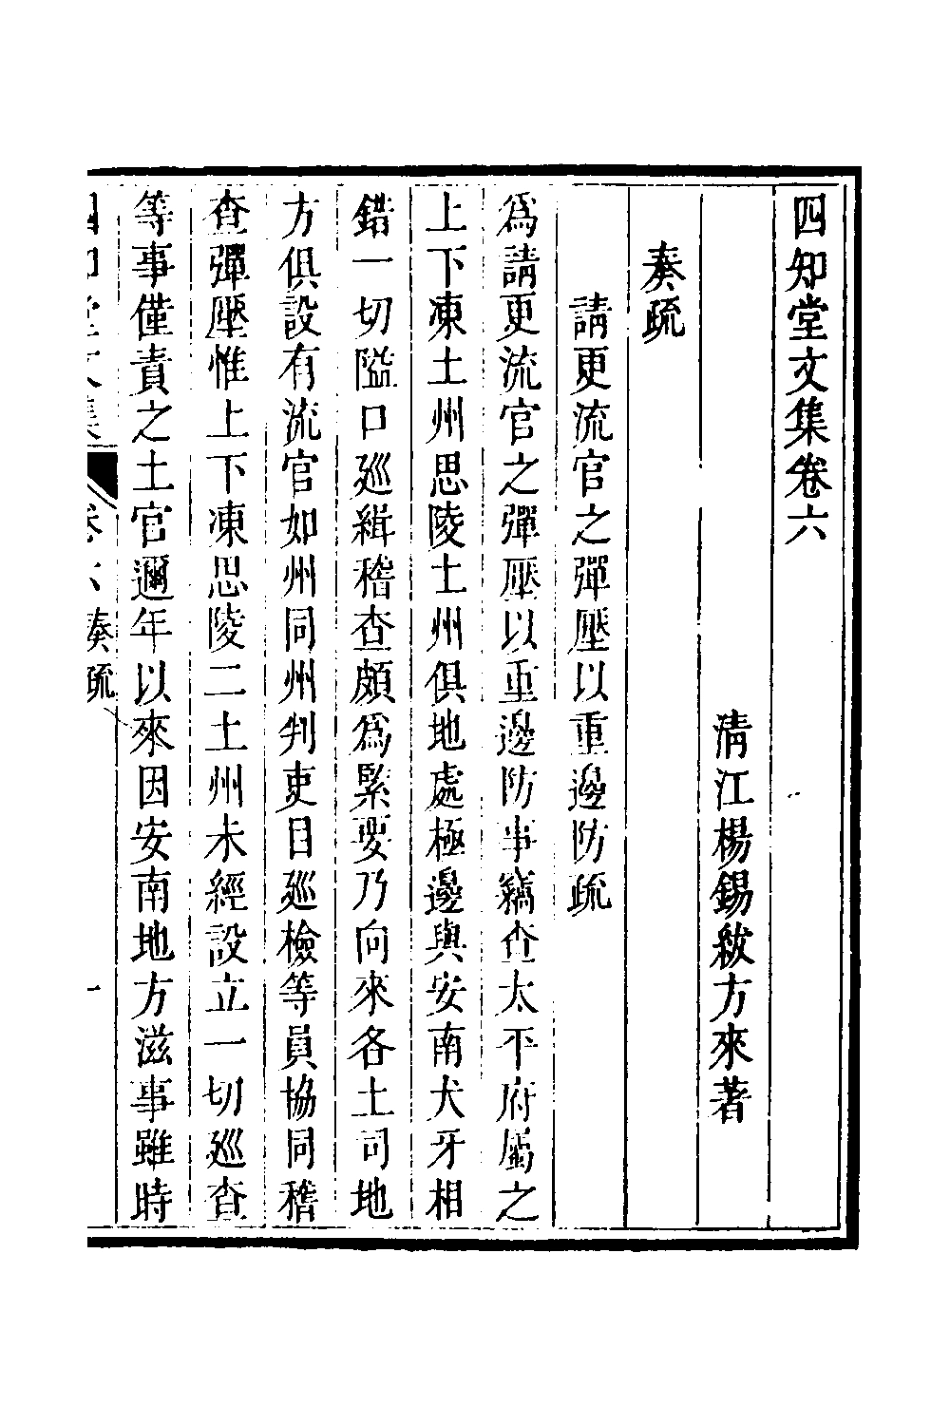 四知堂文集卷六
清江楊錫紱方來著
奏疏
請更流官之彈壓以重邊防疏
爲請更流官之彈壓以重邊防事竊查太平府屬之
上下凍土州思陵土州俱地處極邊與安南犬牙相
錯一切隘口廵緝稽查頗爲緊要乃向來各土司地
方俱設有流官如州同州判吏目廵檢等員協同稽
查彈壓惟上下凍思陵二土州未經設立一切廵查
等事僅責之土官邇年以來因安南地方滋事雖時
四知堂文集
卷六
奏疏
一